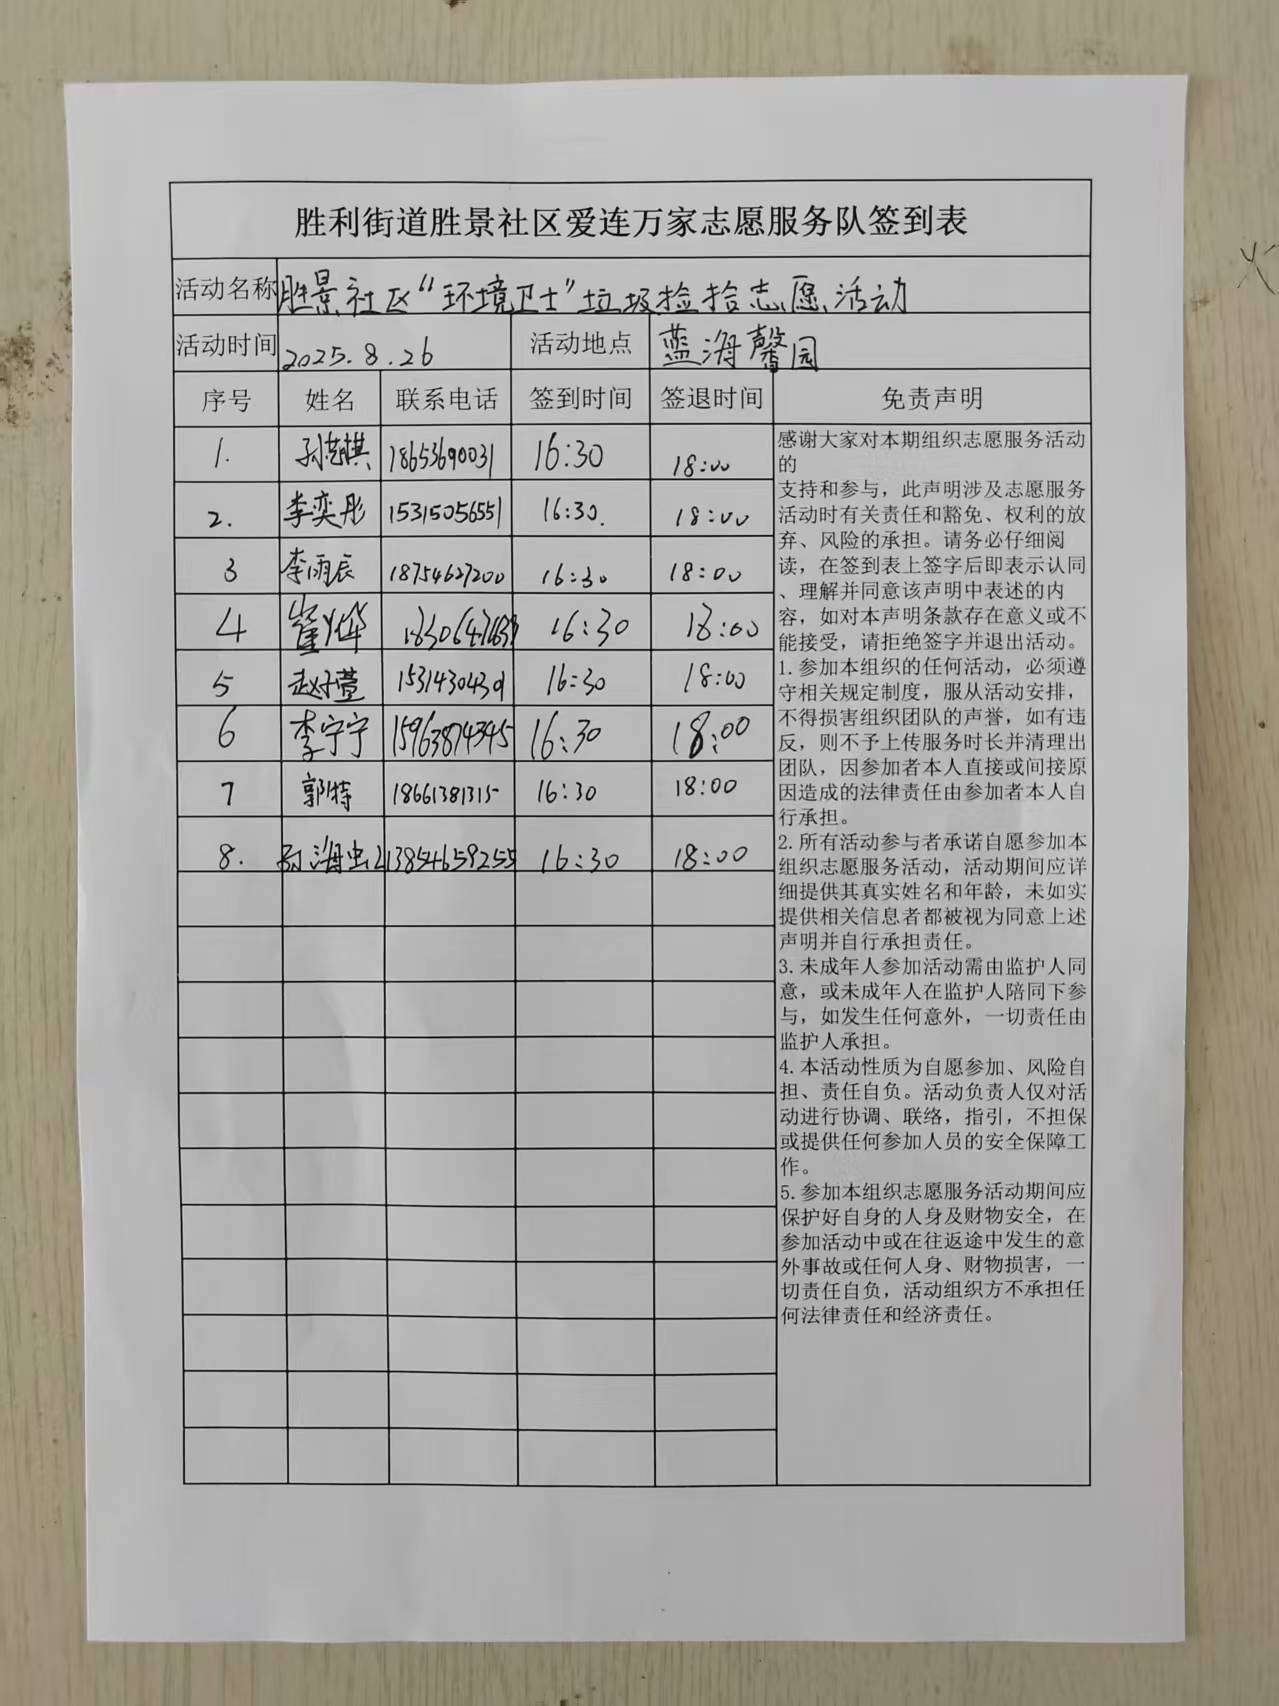 胜利街道胜景社区爱连万家志愿服务队签到表
活动名称 胜景社区“环境卫士”垃圾捡拾志愿活动
活动时间 2025.8.26 活动地点 蓝海馨园
序号 姓名 联系电话 签到时间 签退时间 免责声明
1. 18653690031 16:30 18:00
2. 李奕彤 15315056551 16:30. 18:00
3 李雨辰 18754627200 16:30 18:00
4 崔烨 16:30 18:00
5 赵子萱 15314304301 16:30 18:00
6 李宁宁 15963874345 16:30 18:00
7 郭特 18661381315 16:30 18:00
8. 13854659255 16:30 18:00
感谢大家对本期组织志愿服务活动
的
支持和参与，此声明涉及志愿服务
活动时有关责任和豁免、权利的放
弃、风险的承担。请务必仔细阅
读，在签到表上签字后即表示认同
、理解并同意该声明中表述的内
容，如对本声明条款存在意义或不
能接受，请拒绝签字并退出活动。
1.参加本组织的任何活动，必须遵
守相关规定制度，服从活动安排，
不得损害组织团队的声誉，如有违
反，则不予上传服务时长并清理出
团队，因参加者本人直接或间接原
因造成的法律责任由参加者本人自
行承担。
2.所有活动参与者承诺自愿参加本
组织志愿服务活动，活动期间应详
细提供其真实姓名和年龄，未如实
提供相关信息者都被视为同意上述
声明并自行承担责任。
3.未成年人参加活动需由监护人同
意，或未成年人在监护人陪同下参
与，如发生任何意外，一切责任由
监护人承担。
4.本活动性质为自愿参加、风险自
担、责任自负。活动负责人仅对活
动进行协调、联络，指引，不担保
或提供任何参加人员的安全保障工
作。
5.参加本组织志愿服务活动期间应
保护好自身的人身及财物安全，在
参加活动中或在往返途中发生的意
外事故或任何人身、财物损害，一
切责任自负，活动组织方不承担任
何法律责任和经济责任。